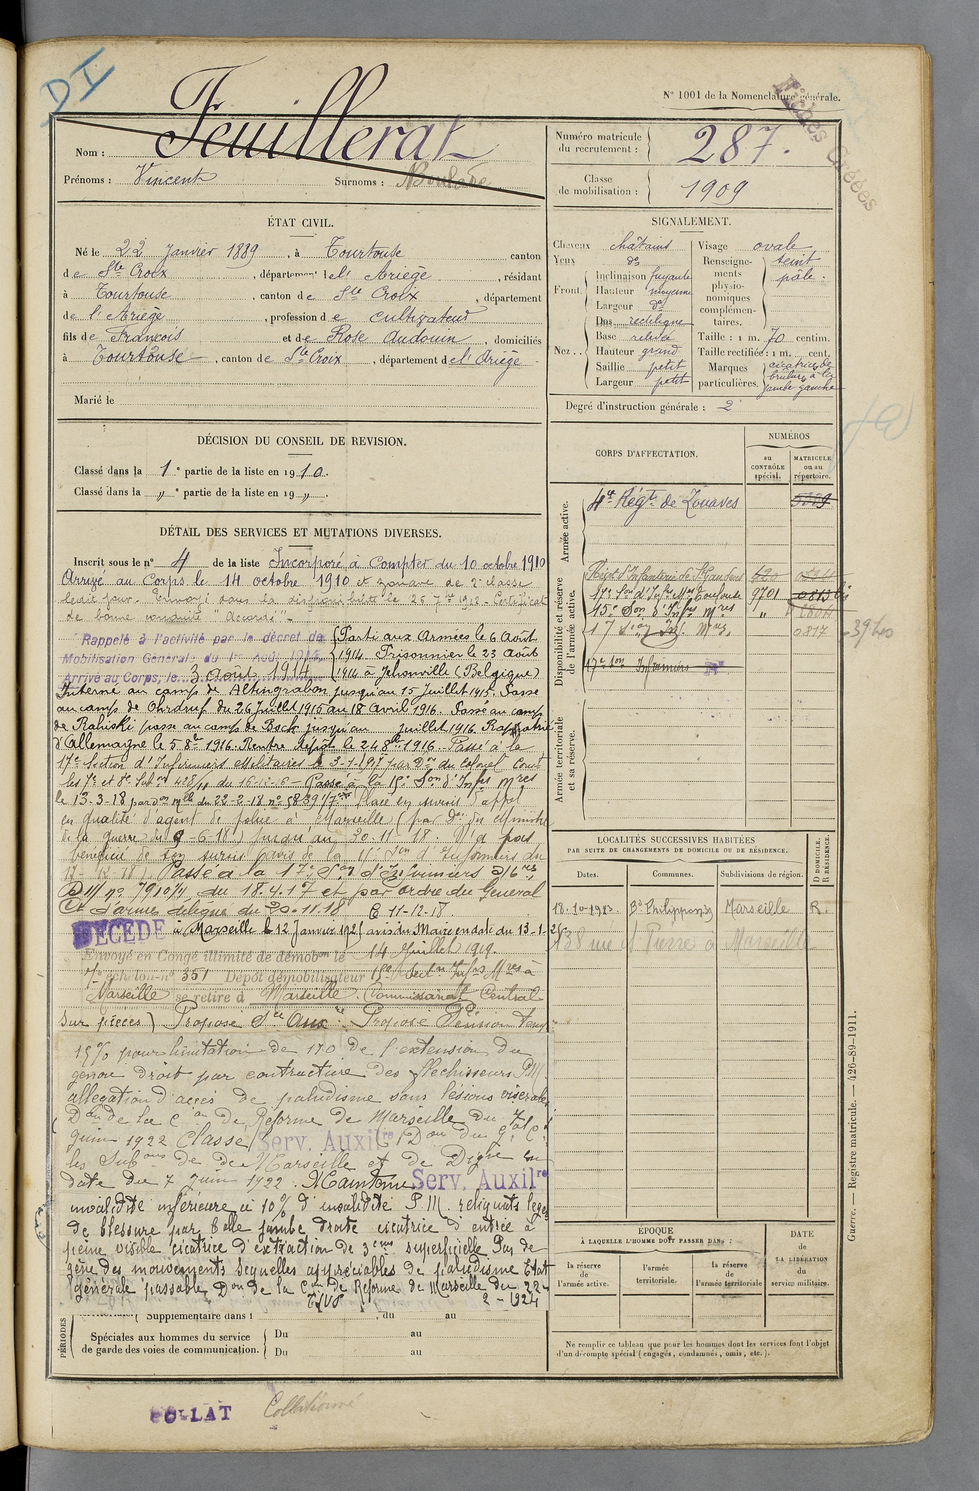 DI
N° 1001 de la Nomenclature générale.
Fiches Créées
Nom : Feuillerat
Prénoms : Vincent Surnoms :
Numéro matricule du recrutement : 287.
Classe de mobilisation : 1909
ÉTAT CIVIL.
Né le 22 Janvier 1889, à Tourtouse canton
de Ste Croix, département de l'Ariège, résidant
à Tourtouse, canton de Ste Croix, département
de l'Ariège, profession de cultivateur
fils de François et de Rose Audouin, domiciliés
à Tourtouse, canton de Ste Croix, département de l'Ariège
Marié le
SIGNALEMENT.
Cheveux châtains
Yeux do
Front Inclinaison fuyante
Hauteur moyenne
Largeur do
Nez Dos rectiligne
Base relevée
Hauteur grand
Saillie petit
Largeur petit
Visage ovale
Renseignements physionomiques complémentaires. teint pâle.
Taille : 1 m. 70 centim.
Taille rectifiée : 1 m. cent.
Marques particulières. cicatrice de brûlure à la jambe gauche
Degré d'instruction générale : 2
DÉCISION DU CONSEIL DE REVISION.
Classé dans la 1e partie de la liste en 1910.
Classé dans la " e partie de la liste en 19 ".
DÉTAIL DES SERVICES ET MUTATIONS DIVERSES.
Inscrit sous le n° 4 de la liste Incorporé à compter du 10 octobre 1910
Arrivé au Corps le 14 octobre 1910 et zouave de 2e classe
ledit jour. Envoyé dans la disponibilité le 26 7bre 1912 - Certificat
de bonne conduite "Accordé" -
Rappelé à l'activité par le décret de
Mobilisation Générale du 1er Août 1914
Arrivé au Corps, le 3 Août 1914
Parti aux Armées le 6 Août
1914. Prisonnier le 23 Août
1914 à Jehonville (Belgique)
Interné au camp de Altengrabon jusqu'au 15 Juillet 1915. Passé
au camp de Ohrdruf du 26 Juillet 1915 au 18 Avril 1916. Passé au camp
de passé au camp de jusqu'au juillet 1916. Rapatrié
d'Allemagne le 5 8bre 1916. Rentré dépôt le 24 8bre 1916. Passé à la
17e Section d'Infirmiers Militaires le 3-1-1917 par Don du Colonel Comt
les 7e et 8e Subons 428/11 du 16-12-16 - Passé à la 15e Son d'Infers Mres
le 13-3-18 par don mlle du 22-2-18 n° 5839 1/7. Placé en sursis d'appel
en qualité d'agent de police à Marseille (par Don du Ministre
de la guerre du 9-6-18) jusqu'au 30-11-18. N'a pas
bénéficié de son sursis (avis de la 15e Son d'Infirmiers du
Passé à la 17e Son d'Infirmiers Mres
DM n° 7910/4 du 18.4.17 et par ordre du Général
Ct d'armes délégué du 30-11-18 le 11-12-18.
DÉCÉDÉ à Marseille le 12 Janvier 192 (avis du Maire en date du 13-1-2
Envoyé en Congé illimité de démobon le 14 Juillet 1919.
7e échelon n° 351 Dépôt démobilisateur 15e Section Infers Mres à
Marseille se retire à Marseille. Commissariat Central
Sur pièces) Proposé Sce Auxre Proposé Pension temp
15% pour limitation de 170 de l'extension du
genou droit par contracture des fléchisseurs PM
allégation d'accès de paludisme sans lésions viscérales
Don de la Con de Réforme de Marseille du 7
Juin 1922 Classé Serv. Auxilre Don du Gal Ct
les Subons de de Marseille et de Digne en
date du 7 Juin 1922. Maintenu Serv. Auxilre
invalidité inférieure à 10% d'invalidité P.M. reliquats légers
de blessure par balle jambe droite cicatrice d'entrée à
peine visible cicatrice d'extraction de 3 cms superficielle Pas de
gêne des mouvements Séquelles appréciables de paludisme Etat
général passable Don de la Con de Réforme de Marseille du 22
2-1924
CORPS D'AFFECTATION.
NUMÉROS
au CONTRÔLE spécial.
MATRICULE ou au répertoire.
Armée active.
4e Régt de Zouaves
Disponibilité et réserve de l'armée active.
Régt d'Infanterie de St Gaudens 420
17e Son d'Infers Mres Toulouse 9701
15e Son d'Infers Mres "
17 Son Inf. Mres 0817
17e Son Infirmiers
Armée territoriale et sa réserve.
LOCALITÉS SUCCESSIVES HABITÉES
PAR SUITE DE CHANGEMENTS DE DOMICILE OU DE RÉSIDENCE.
D DOMICILE. R RÉSIDENCE.
Dates. Communes. Subdivisions de région.
18-10-1913. Bd Philippon 39 Marseille R.
138 rue St Pierre à Marseille
ÉPOQUE
À LAQUELLE L'HOMME DOIT PASSER DANS :
la réserve de l'armée active.
l'armée territoriale.
la réserve de l'armée territoriale
DATE de LA LIBÉRATION du service militaire.
Ne remplir ce tableau que pour les hommes dont les services font l'objet
d'un décompte spécial (engagés, condamnés, omis, etc.).
PÉRIODES
Supplémentaire dans l , du au
Spéciales aux hommes du service
de garde des voies de communication.
Du au
Du au
Guerre. — Registre matricule. — 426-89-1911.
Collationné